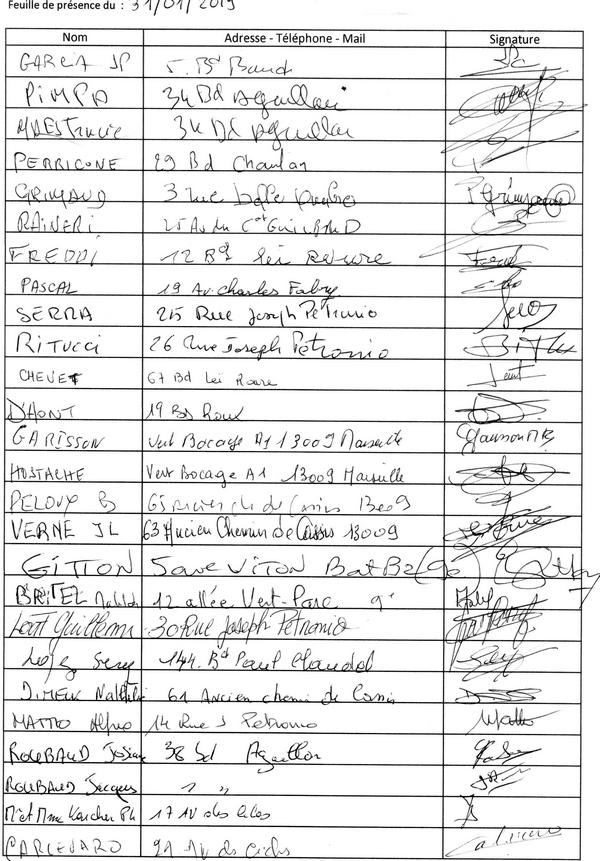 Feuille de présence du : 31/01/2019
Nom Adresse - Téléphone - Mail Signature
GARCIA JP 5. Bd
PIMPA 34 Bd Aguillon
34 Bd Aguillon
PERRICONE 29 Bd
GRIMAUD 3 rue belle
RAINERI 25 Av du Cdt GUILBAUD
FREDDI 12 Bd lei Roure
PASCAL 19 Av Charles Fabry
SERRA 25 Rue Joseph Pétronio
RITUCCI 26 Rue Joseph Pétronio
CHEVET 67 Bd Lei Roure
D'HONT 19 Bd Roux
GARISSON Vert Bocage A1 13009 Marseille Garisson MB
HUSTACHE Vert Bocage A1 13009 Marseille
PELOUX B 65 ancien ch de Cassis 13009
VERNE JL 63 Ancien Chemin de Cassis 13009
GITTON SAUVEVITON Bat B2
BRITEL 12 allée Vert-Parc 9e
Guillermi 30 Rue Joseph Pétronio
144. Bd Paul Claudel
DIMEUX Nathalie 61 Ancien chemin de Cassis
MATTIO Alfred 14 Rue J Pétronio Mattio
ROUBAUD Josiane 38 Bd Aguillon
ROUBAUD Jacques " "
Mr et Mme Karcher Ph 17 AV des lilas
CARLEVARO 21 AV des